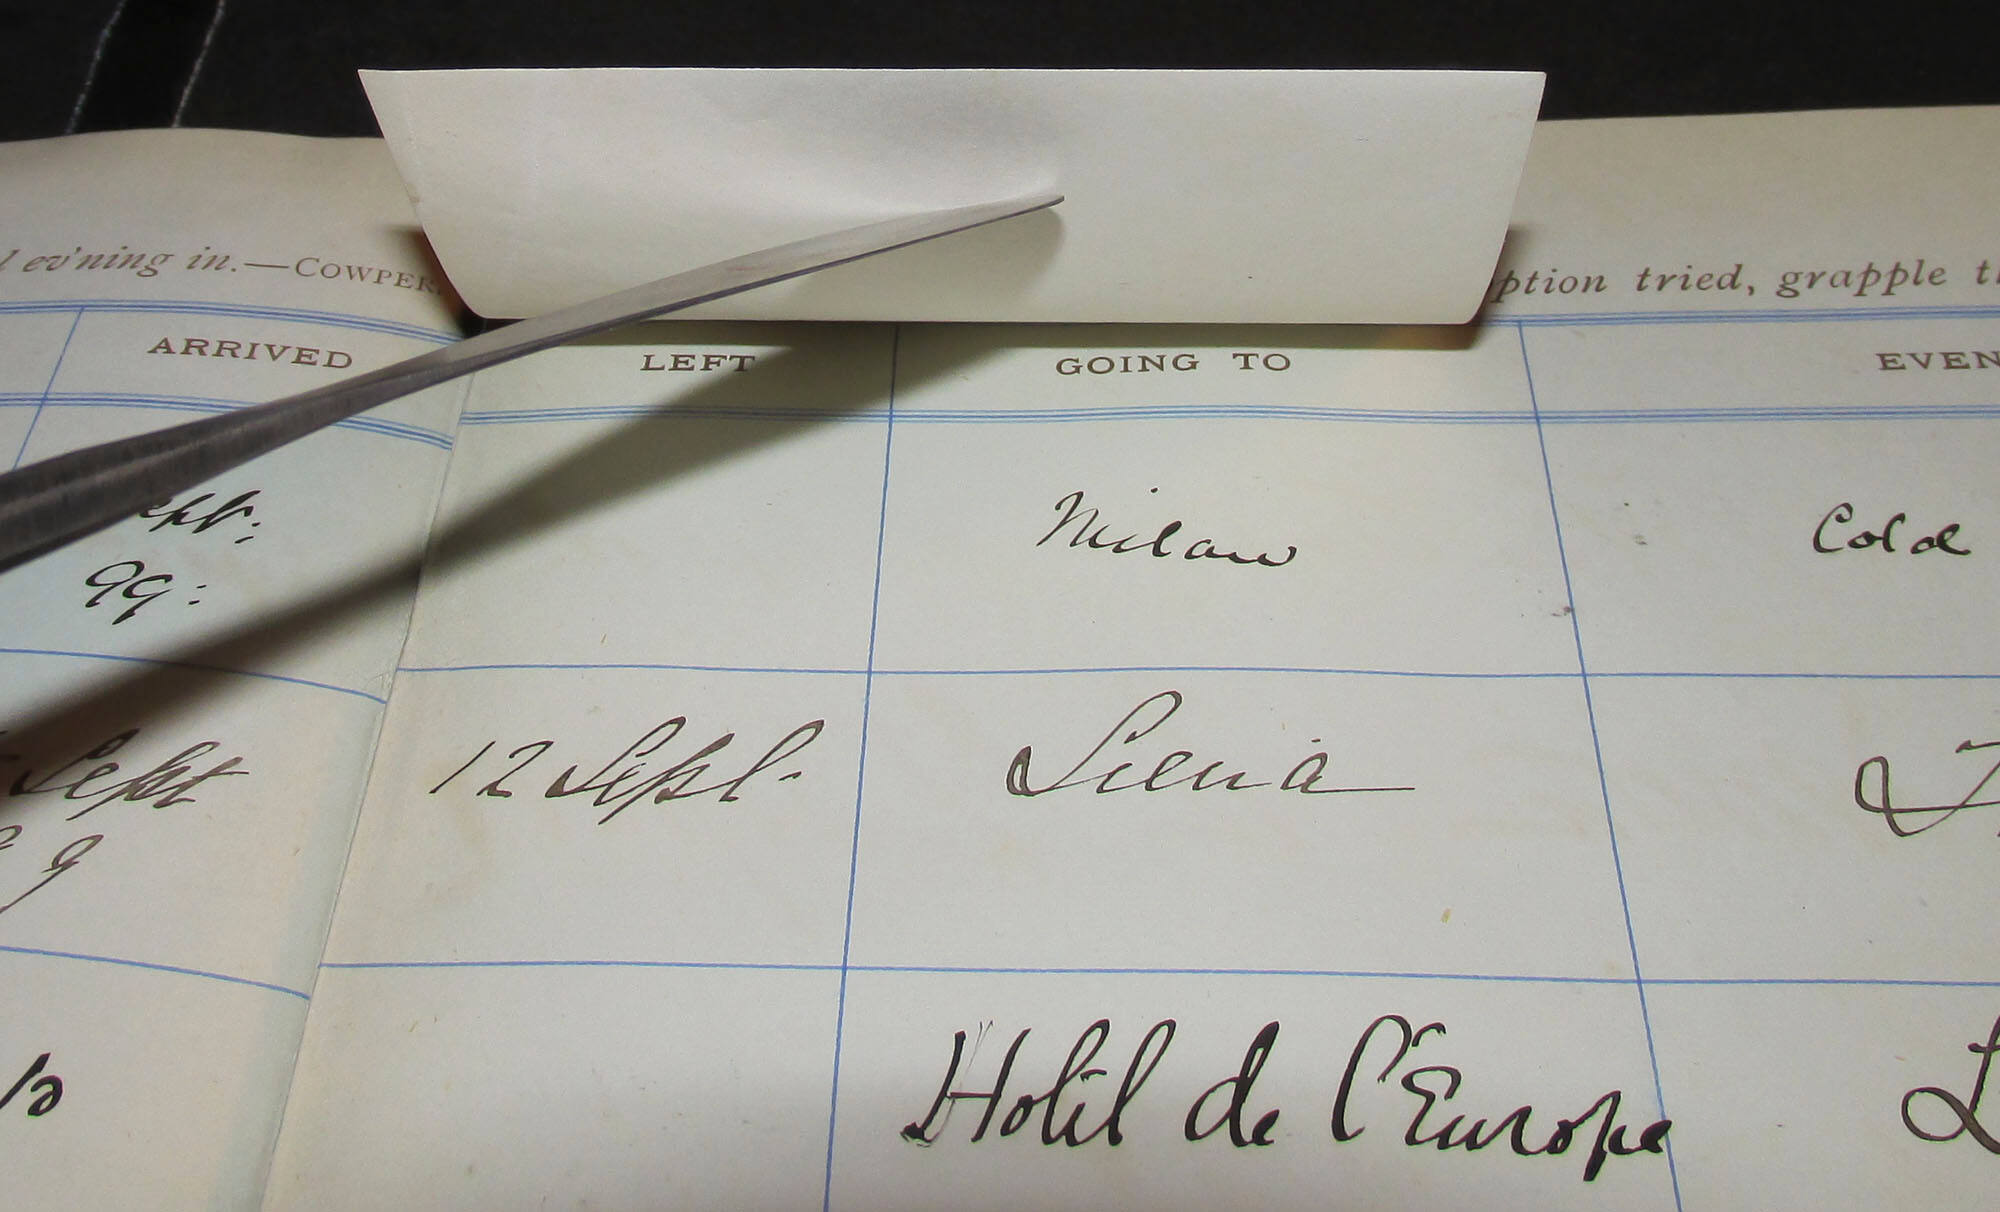 ev'ning in.—COWPER.
ption tried, grapple
ARRIVED LEFT GOING TO EVEN
Sept: Milan Cold
99:
Sept 12 Sept. Siena
9
Hotel de l'Europe